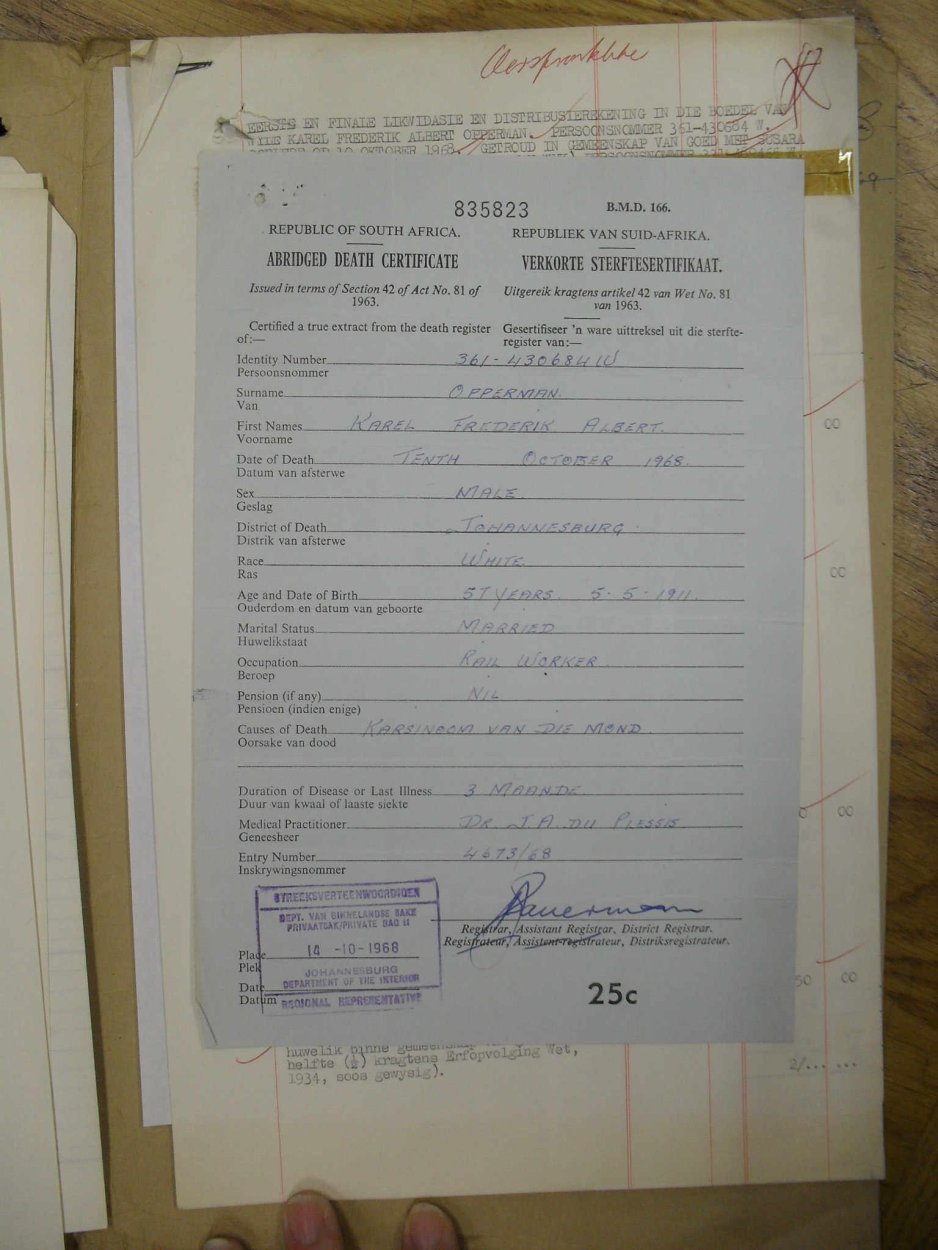 Oorspronklike
EERSTE EN FINALE LIKWIDASIE EN DISTRIBUSIEREKENING IN DIE BOEDEL VAN
WYLE KAREL FREDERIK ALBERT OPPERMAN. PERSOONSNOMMER 361-430684 W,
OORLEDE OP 10 OKTOBER 1968. GETROUD IN GEMEENSKAP VAN GOED MET SUSARA
835823
B.M.D. 166.
REPUBLIC OF SOUTH AFRICA.
REPUBLIEK VAN SUID-AFRIKA.
ABRIDGED DEATH CERTIFICATE
VERKORTE STERFTESERTIFIKAAT.
Issued in terms of Section 42 of Act No. 81 of
1963.
Uitgereik kragtens artikel 42 van Wet No. 81
van 1963.
Certified a true extract from the death register
of:—
Gesertifiseer 'n ware uittreksel uit die sterfte-
register van:—
Identity Number 361-430684 W
Persoonsnommer
Surname OPPERMAN.
Van
First Names KAREL FREDERIK ALBERT.
Voorname
Date of Death TENTH OCTOBER 1968.
Datum van afsterwe
Sex MALE.
Geslag
District of Death JOHANNESBURG.
Distrik van afsterwe
Race WHITE
Ras
Age and Date of Birth 57 YEARS. 5.5.1911.
Ouderdom en datum van geboorte
Marital Status MARRIED
Huwelikstaat
Occupation RAIL WORKER.
Beroep
Pension (if any) NIL
Pensioen (indien enige)
Causes of Death KARSINOOM VAN DIE MOND.
Oorsake van dood
Duration of Disease or Last Illness 3 MAANDE
Duur van kwaal of laaste siekte
Medical Practitioner DR. J.A. DU PLESSIS
Geneesheer
Entry Number 4673/68
Inskrywingsnommer
STREEKSVERTEENWOORDIGER
DEPT. VAN BINNELANDSE SAKE
PRIVAATSAK/PRIVATE BAG 11
14 -10-1968
JOHANNESBURG
DEPARTMENT OF THE INTERIOR
REGIONAL REPRESENTATIVE
Place
Plek
Date
Datum
Registrar, Assistant Registrar, District Registrar.
Registrateur, Assistent-registrateur, Distriksregistrateur.
25c
00
00
00
50 00
huwelik binne
helfte (½) kragtens Erfopvolging Wet,
1934, soos gewysig).
2/... ...